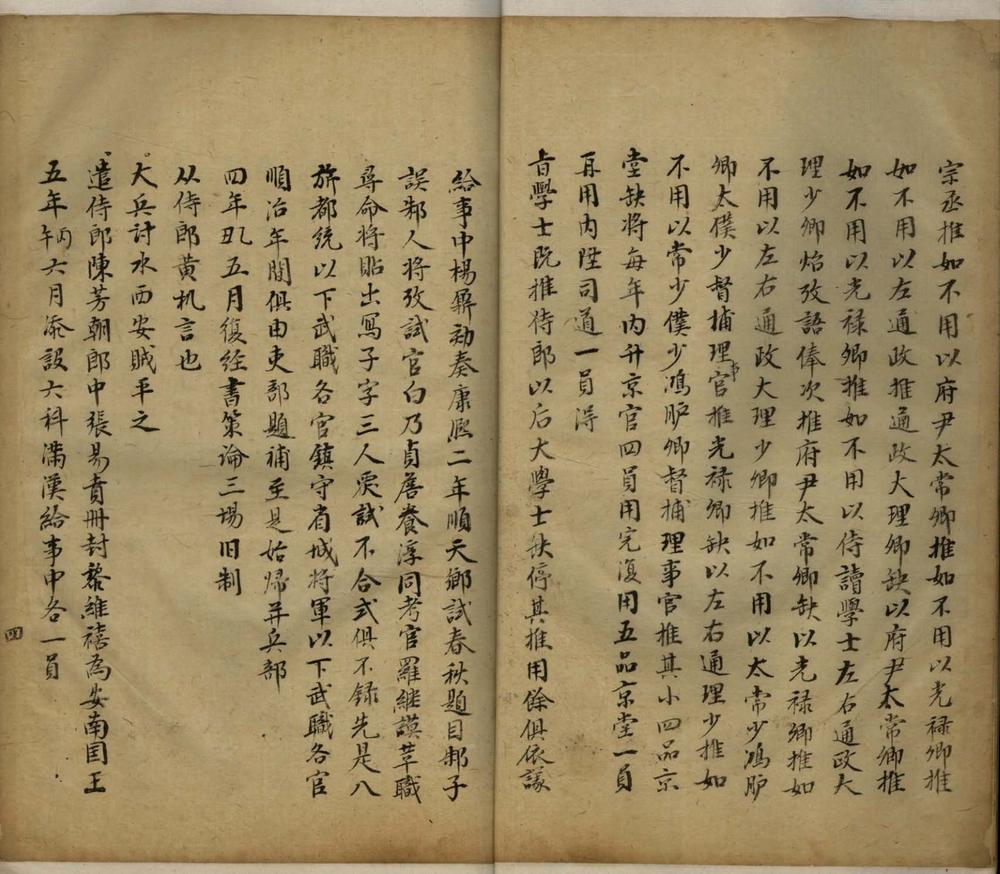 宗丞推如不用以府尹太常卿推如不用以光禄卿推
如不用以左通政推通政大理卿缺以府尹太常卿推
如不用以光禄卿推如不用以侍讀學士左右通政大
理少卿焰攷語俸次推府尹太常卿缺以光禄卿推如
不用以左右通政大理少卿推如不用以太常少鴻胪
卿太僕少督捕理事官推光禄卿缺以左右通理少推如
不用以常少僕少鴻胪卿督捕理事官推其小四品京
堂缺将每年内升京官四員用完復用五品京堂一員
再用内陞司道一員得
㫖學士既推侍郎以后大學士缺停其推用餘俱依議
給事中楊鼐劾奏康熙二年順天鄉試春秋題目邾子
誤邾人将攷試官白乃貞詹養淳同考官羅継謨革職
尋命将貼出寫子字三人覆試不合式俱不録先是八
旂都統以下武職各官鎮守省城将軍以下武職各官
順治年間俱由吏部題補至是始歸并兵部
四年乙巳五月復经書策論三場旧制
从侍郎黄机言也
大兵討水西安贼平之
遣侍郎陳芳朝郎中張易賁冊封黎維禧為安南囯王
五年丙午六月添設六科滿漢給事中各一員
四